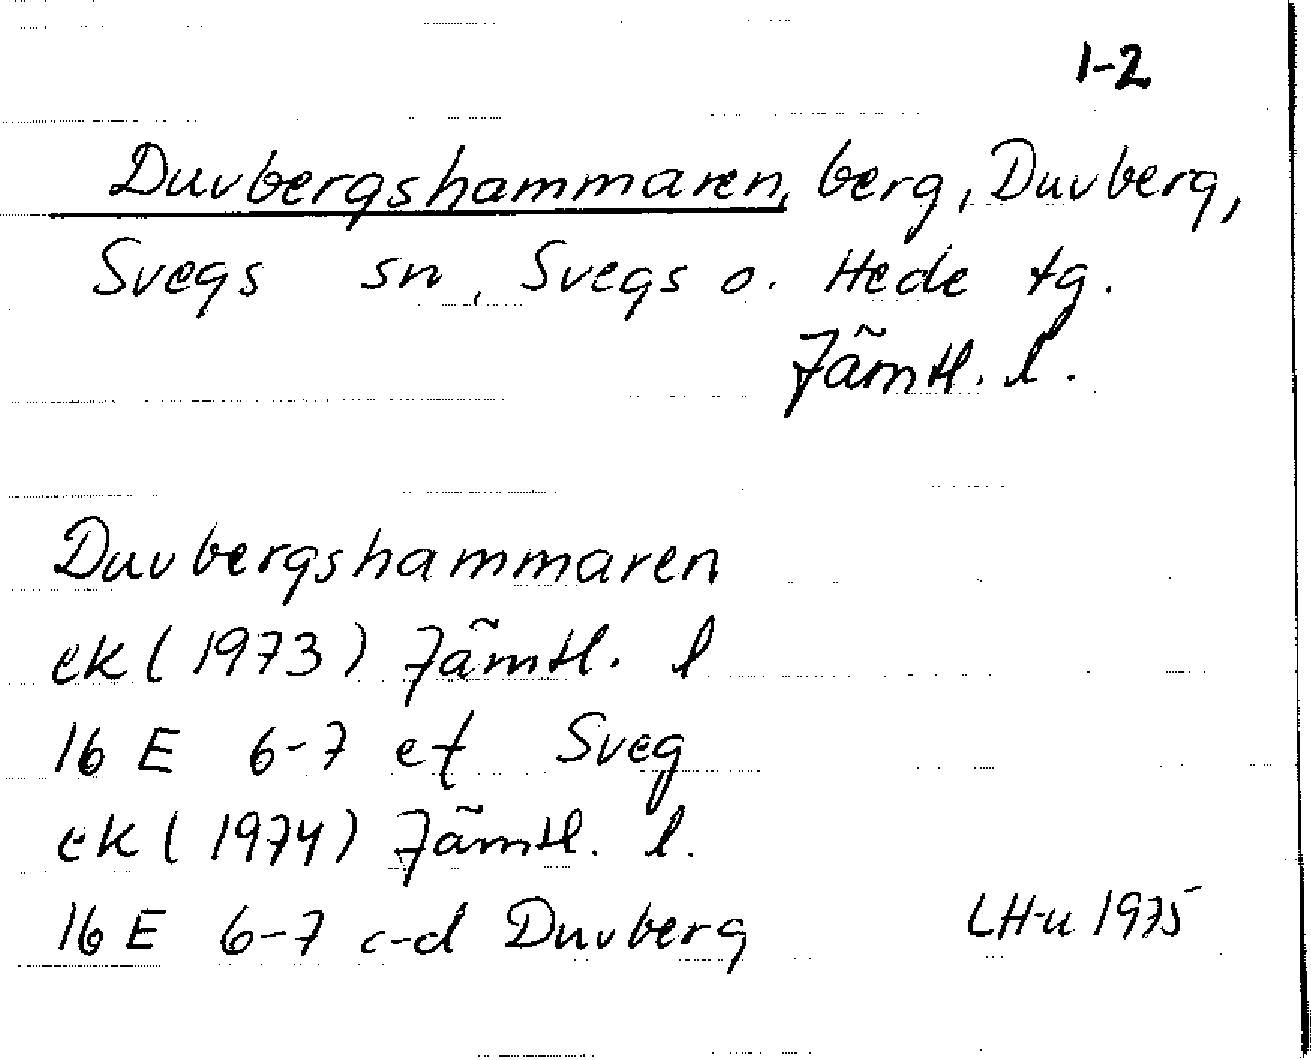 1-2
Duvbergshammaren, berg, Duvberg,
Svegs sn, Svegs o. Hede tg.
Jämtl. l.
Duvbergshammaren
ek (1973) Jämtl. l
16 E 6-7 ef Sveg
ek (1974) Jämtl. l.
16 E 6-7 c-d Duvberg LH-u 1975